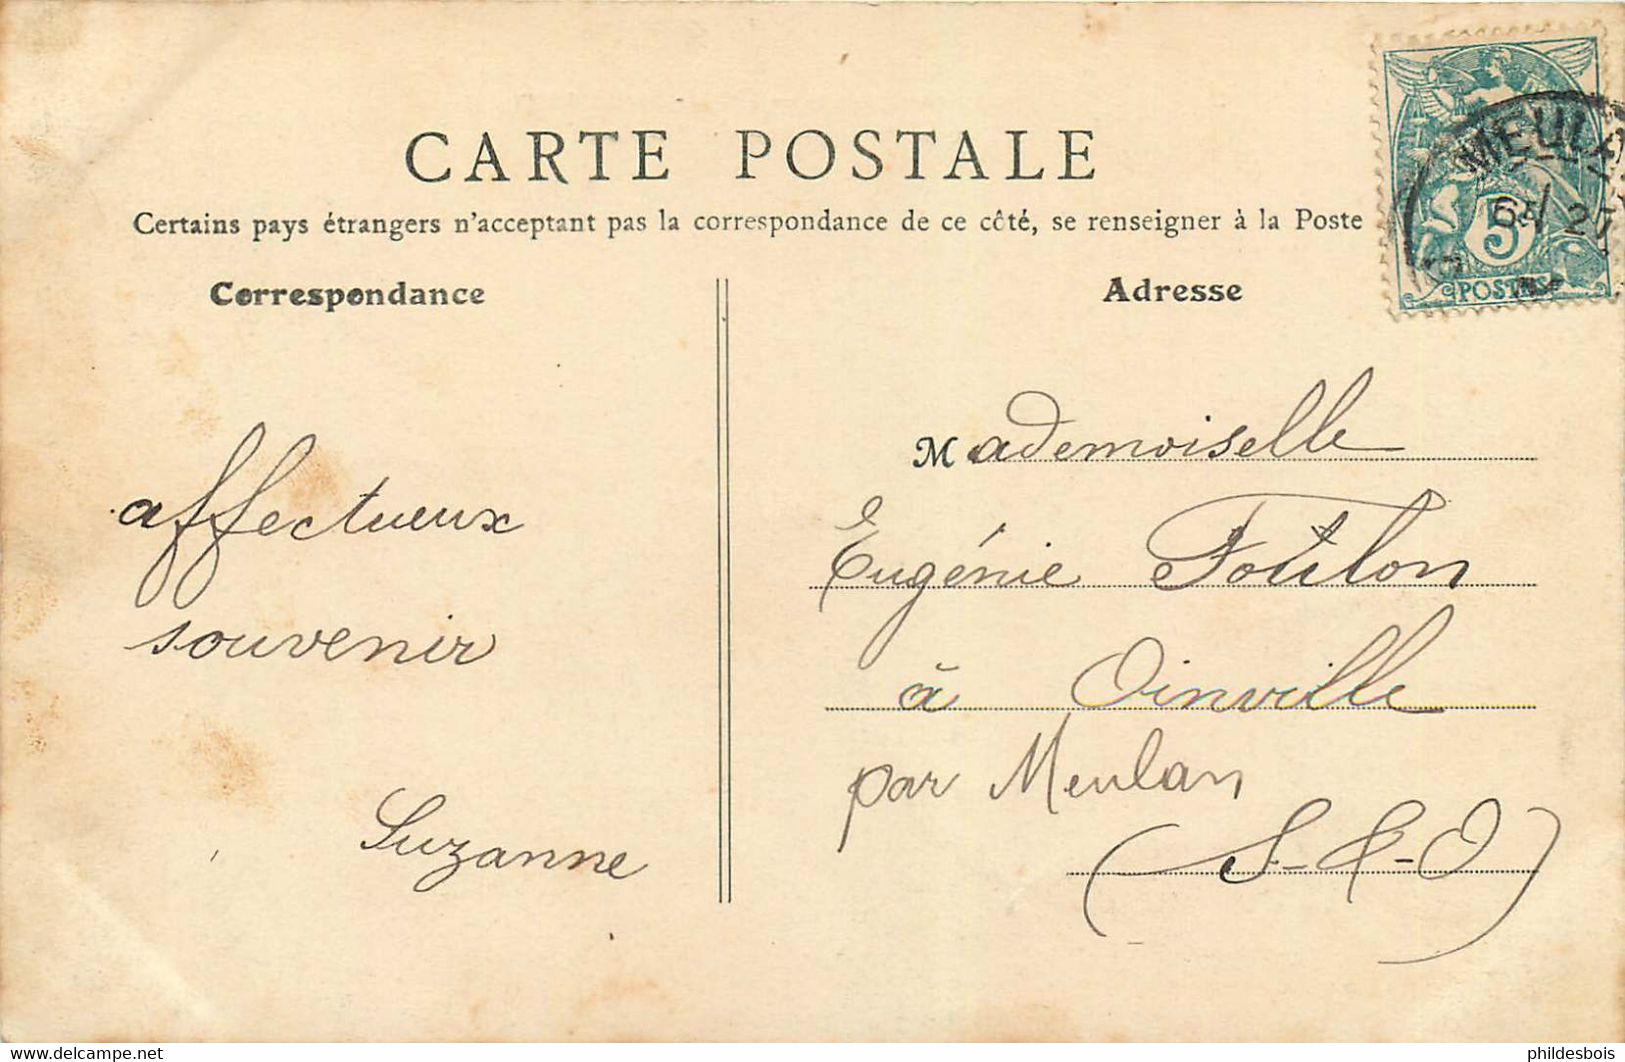 CARTE POSTALE
Certains pays étrangers n'acceptant pas la correspondance de ce côté, se renseigner à la Poste
Correspondance
affectueux
souvenir
Suzanne
Adresse
Mademoiselle
Eugénie Foulon
à Oinville
par Meulan
(S-&-O)
5
POSTES
phildesbois